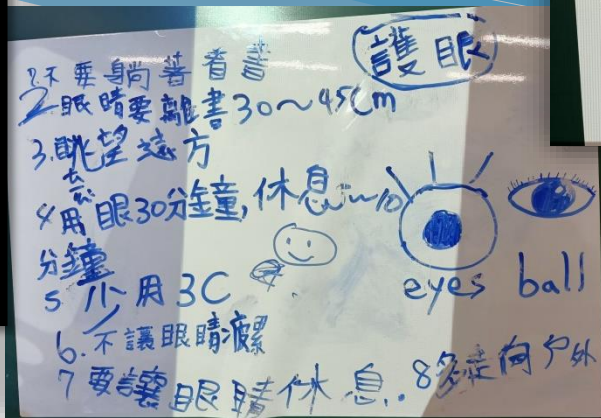 護眼
1.不要躺著看書
2眼睛要離書30～45cm
3.眺望遠方
4用眼30分鐘,休息～10
分鐘
5 少用3C
6.不讓眼睛疲累
7 要讓眼睛休息..8多走向户外
eyes ball